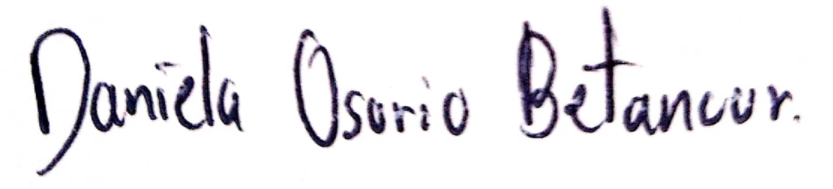 Daniela Osorio Betancur.